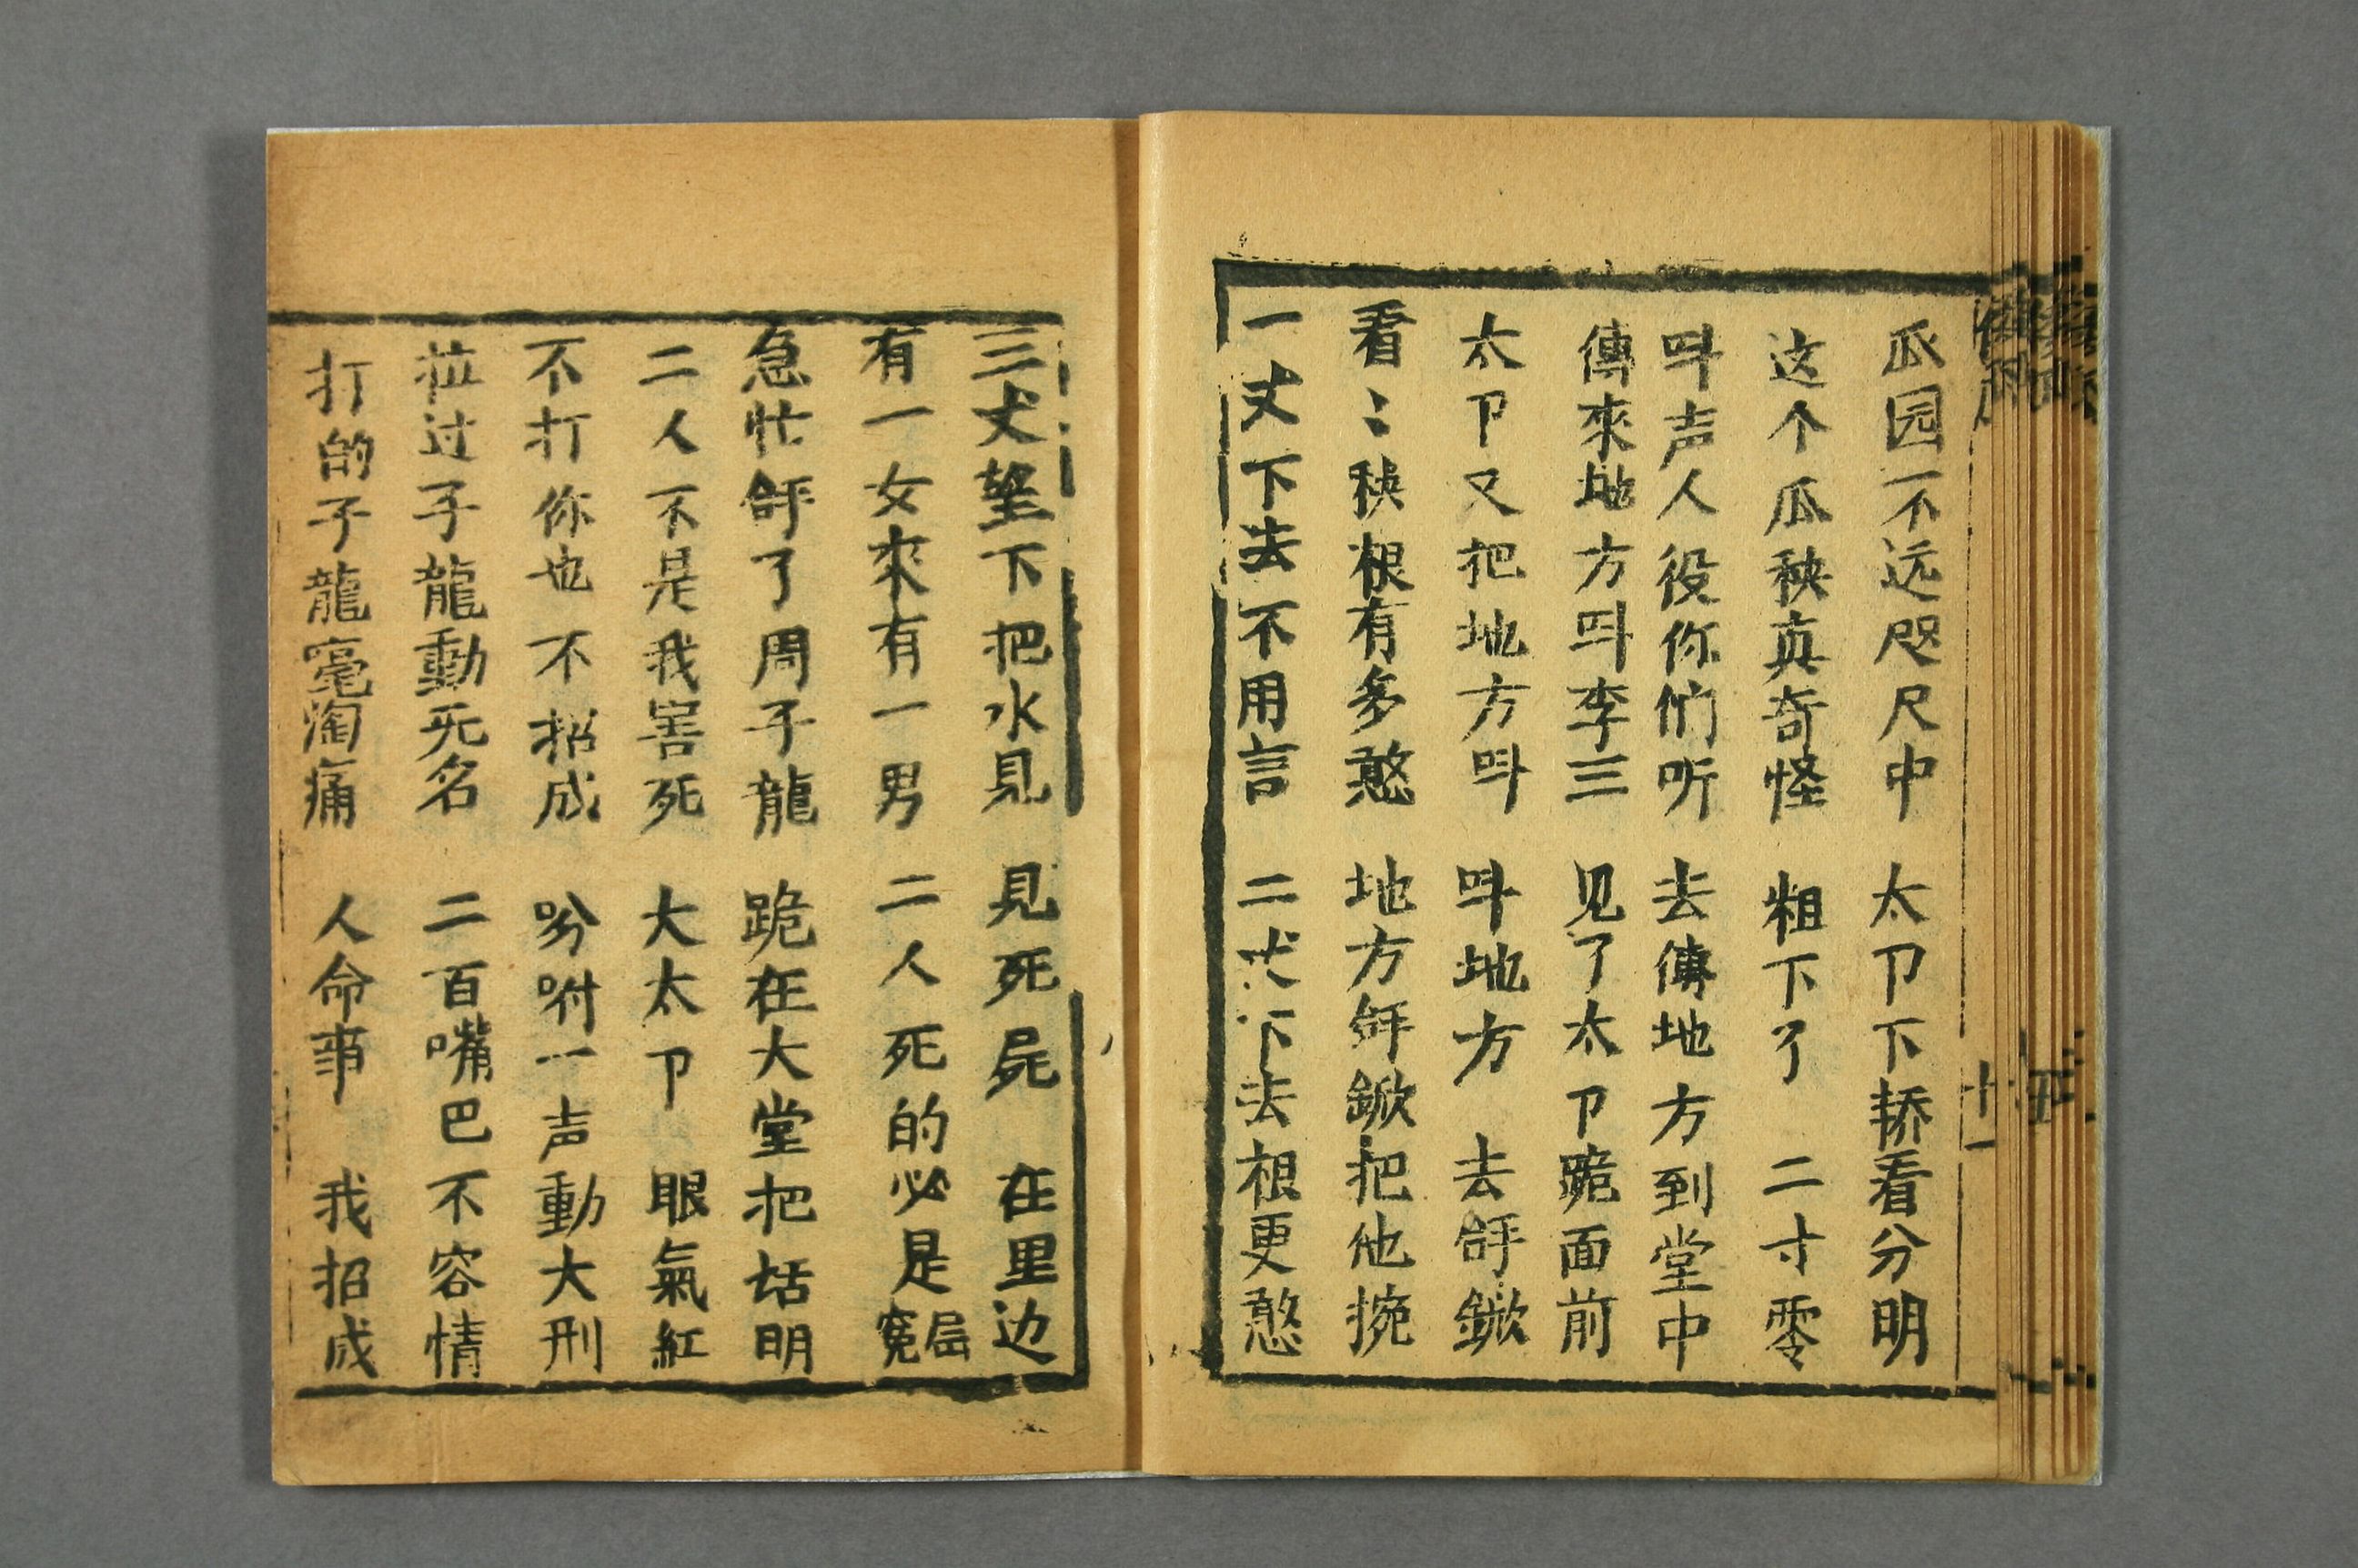 瓜园不远咫尺中　太卩下轿看分明
这个瓜秧真奇怪　粗下了二寸零
呌声人役你们听　去傳地方到堂中
傳來地方呌李三　见了太卩跪面前
太卩又把地方呌　呌地方去㧱鍁
看〻秧根有多憨　地方㧱鍁把他㨫
一丈下去不用言　二丈下去根更憨
十一
三丈望下把水見　見死屍在里边
有一女來有一男　二人死的必是冤屈
急忙㧱了周子龍　跪在大堂把话明
二人不是我害死　大太卩眼氣紅
不打你也不招成　吩咐一声動大刑
拉过子龍動死名　二百嘴巴不容情
打的子龍毫淘痛　人命事我招成